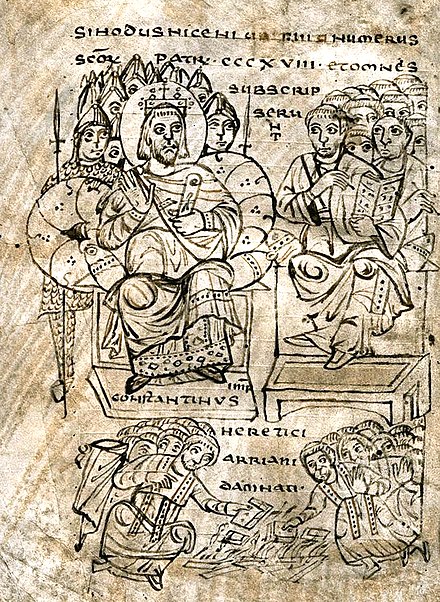 SINHODUS NICENI NUMERUS
SCOR PATRU · CCCXVIII · ET OMNES
SUBSCRIP
SERU
NT
IMP
CONSTANTINUS
HERETICI
ARRIANI
DAMNATI ·